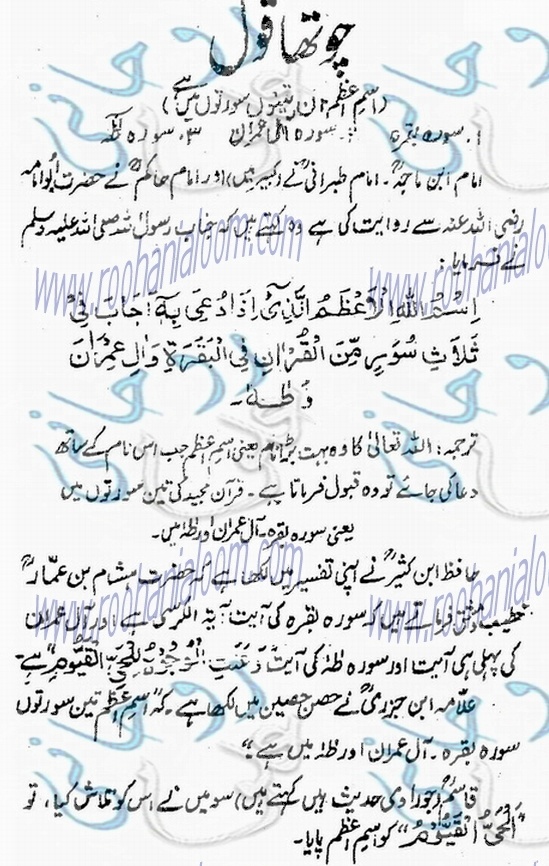 چوتھا قول
(اسمِ اعظم ان تینوں سورتوں میں ہے)
۱. سورہ بقرہ ۲. سورہ آل عمران ۳. سورہ طٰہٰ
امام ابن ماجہؒ۔ امام طبرانیؒ نے (کبیر میں) اور امام حاکمؒ نے حضرت ابو امامہ
رضی اللہ عنہ سے روایت کی ہے وہ کہتے ہیں کہ جناب رسول اللہ صلی اللہ علیہ وسلم
نے فرمایا:
اِسْمُ اللهِ الْاَعْظَمُ الَّذِیْ اِذَا دُعِیَ بِهٖ اَجَابَ فِیْ
ثَلَاثِ سُوَرٍ مِّنَ الْقُرْاٰنِ فِی الْبَقَرَةِ وَاٰلِ عِمْرَانَ
وَ طٰهٰ۔
ترجمہ: اللہ تعالیٰ کا وہ بہت بڑا نام یعنی اسمِ اعظم جب اس نام کے ساتھ
دعا کی جائے تو وہ قبول فرماتا ہے۔ قرآن مجید کی تین سورتوں میں
یعنی سورہ بقرہ۔ آل عمران اور طٰہٰ میں۔
حافظ ابن کثیرؒ نے اپنی تفسیر میں لکھا ہے کہ حضرت ہشام بن عمارؒ
خطیب دمشق فرماتے ہیں کہ سورہ بقرہ کی آیت آیۃ الکرسی ہے اور آل عمران
کی پہلی ہی آیت اور سورہ طٰہٰ کی آیت وَعَنَتِ الْوُجُوْهُ لِلْحَیِّ الْقَیُّوْمِ ہے۔
علامہ ابن جزریؒ نے حصن حصین میں لکھا ہے۔ کہ "اسمِ اعظم تین سورتوں
سورہ بقرہ۔ آل عمران اور طٰہٰ میں ہے۔"
قاسمؒ (جو راوی حدیث ہیں کہتے ہیں) سو میں نے اس کو تلاش کیا، تو
"اَلْحَیُّ الْقَیُّوْمُ" کو اسم اعظم پایا۔
www.roohanialoom.com
www.roohanialoom.com
www.roohanialoom.com
www.roohanialoom.com